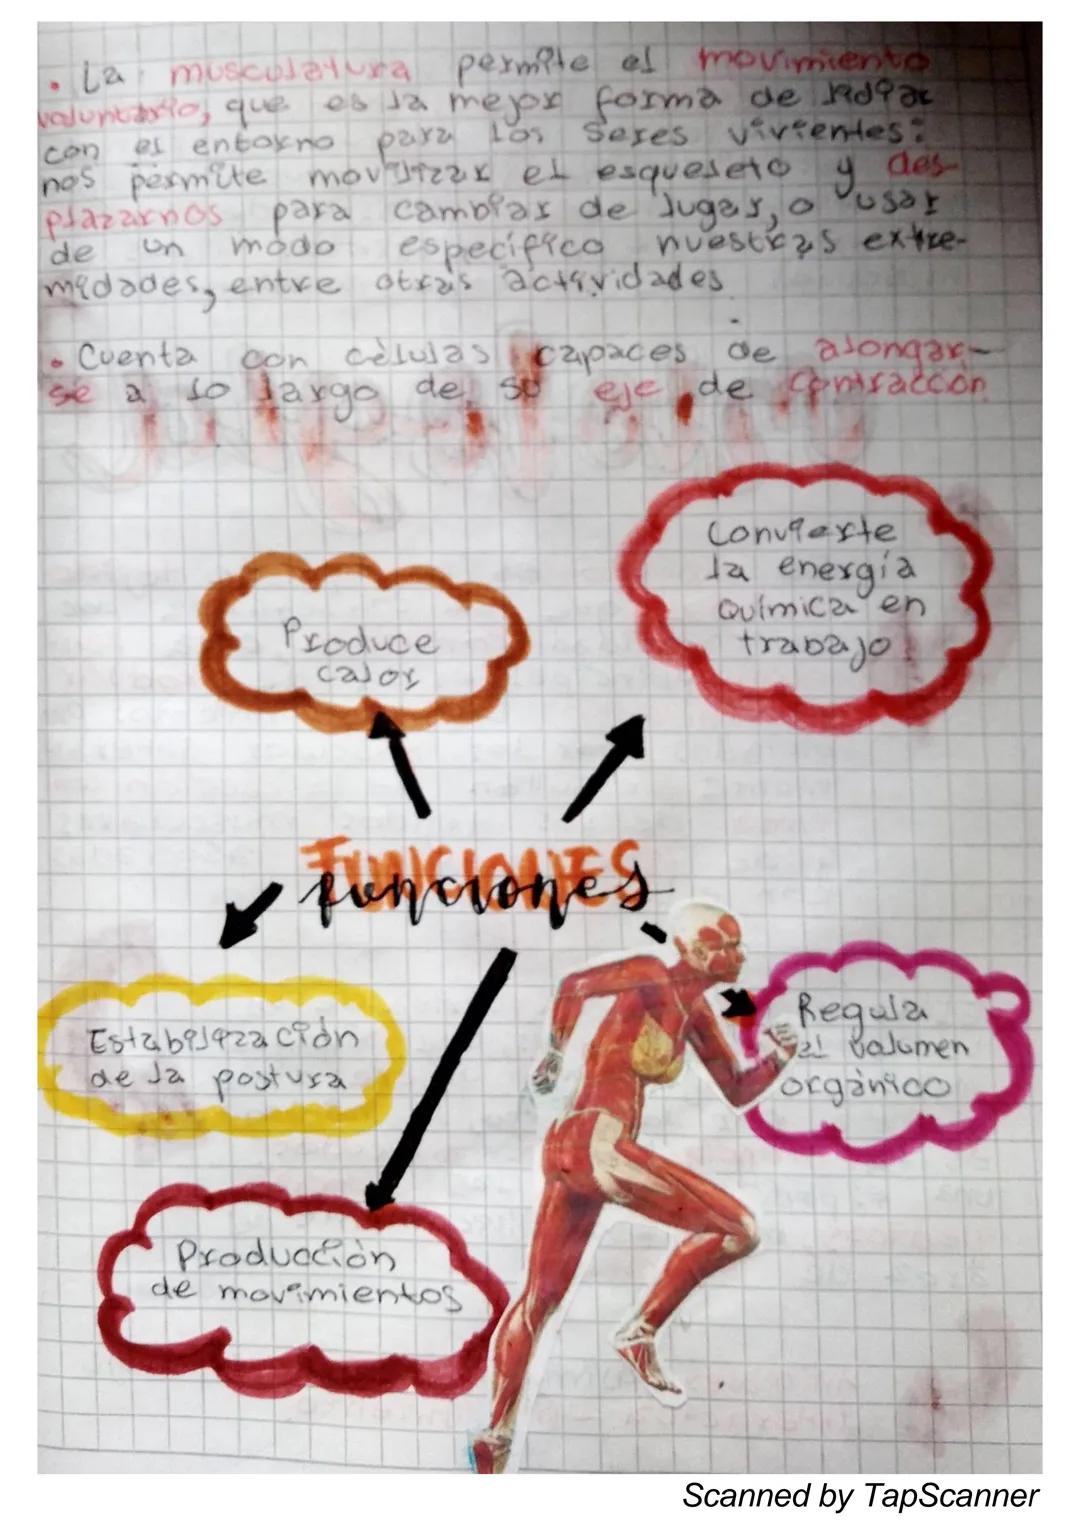 • La musculatura permite el movimiento
voluntario, que es la mejor forma de lidiar
con el entorno para los seres vivientes:
nos permite movilizar el esqueleto y des-
plazarnos para cambiar de lugar, o usar
de un modo específico nuestras extre-
midades, entre otras actividades.
• Cuenta con cèlulas capaces de alongar-
se a lo largo de su eje de contracción
Convierte
la energía
Química en
trabajo
Produce
calor
FUNCIONES
funciones
Estabilización
de la postura
Regula
el volumen
orgànico
Producciòn
de movimientos
Scanned by TapScanner